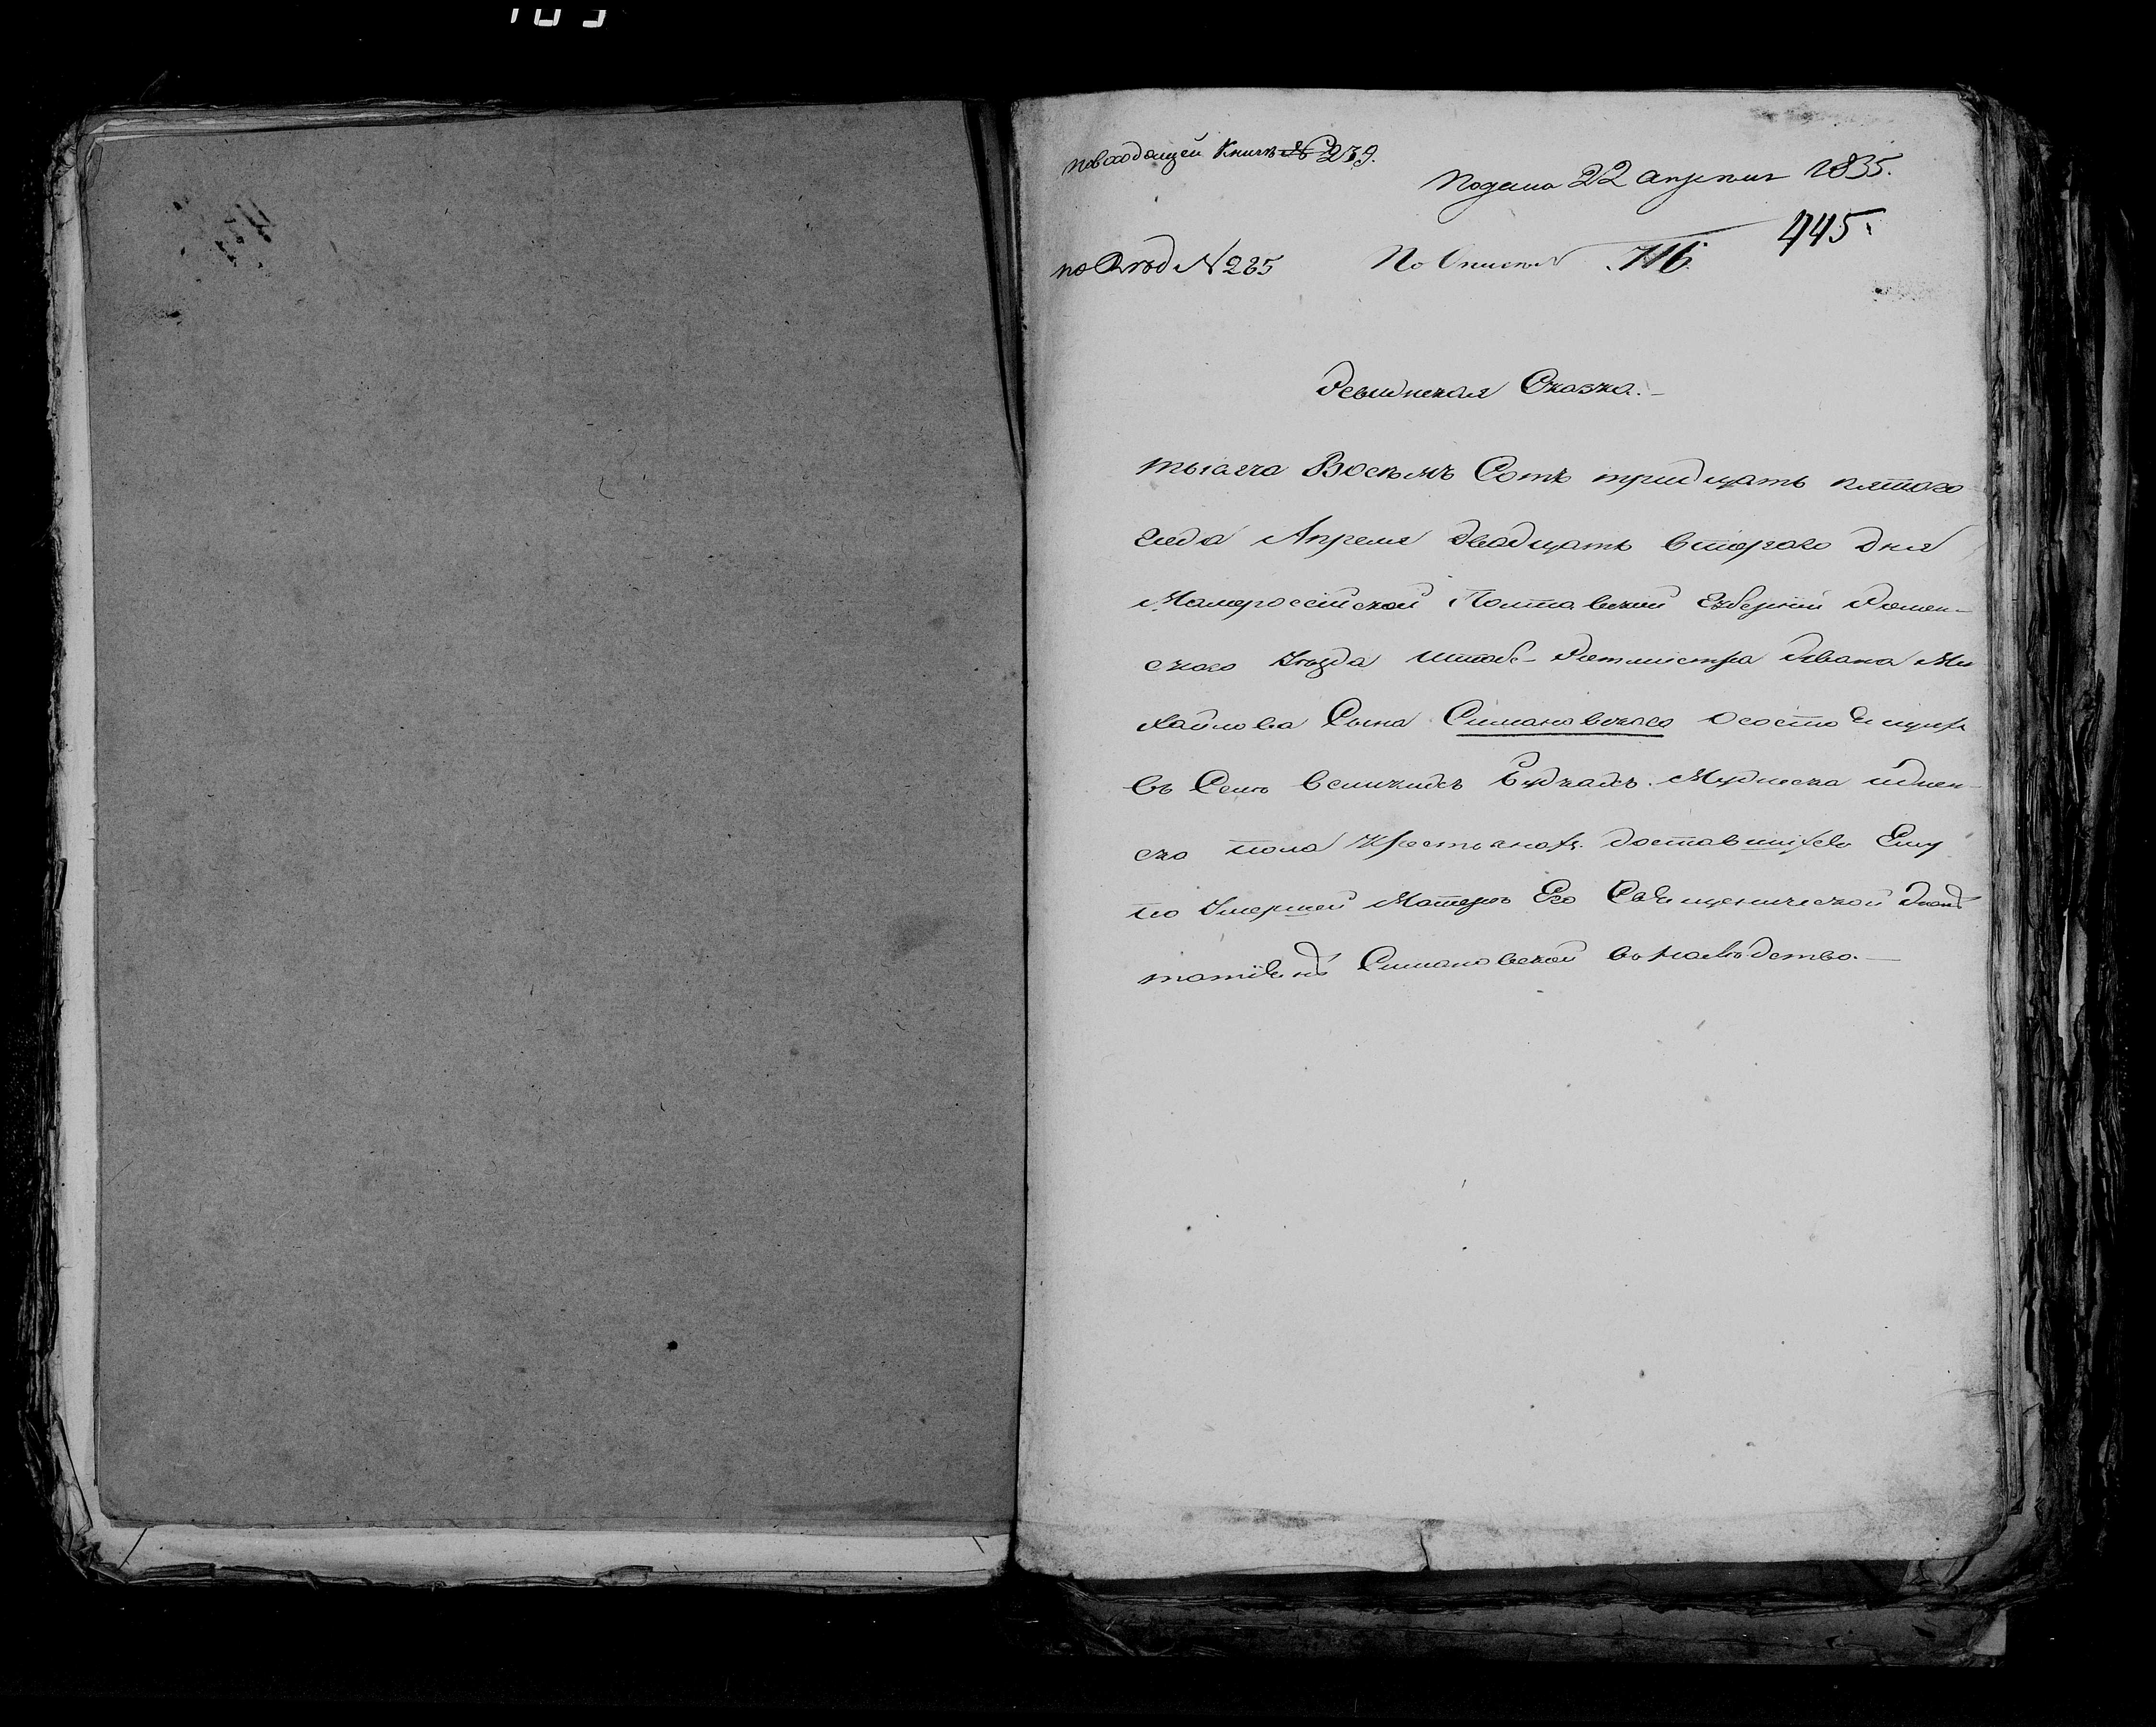 по входящей Книгѣ № 239.
Подана 22 апреля 1835.
445.
по № 285
По Описи № 716.
Ревизская Сказка.
тысяча Восемъ Сотъ тридцать пятого
года Апреля двадцать второго дня
Малороссийской Полтавской Губернии Ромен-
ского Уезда Штабс-Ротмистра Ивана Ми
хайлова Сына Симановского о состоящихъ
въ Селе Великихъ Будкахъ Мужеска и Жен-
ско пола Крестьянахъ доставшихся Ему
по Умершей Матере Его Священнической
Симановской во наследство.